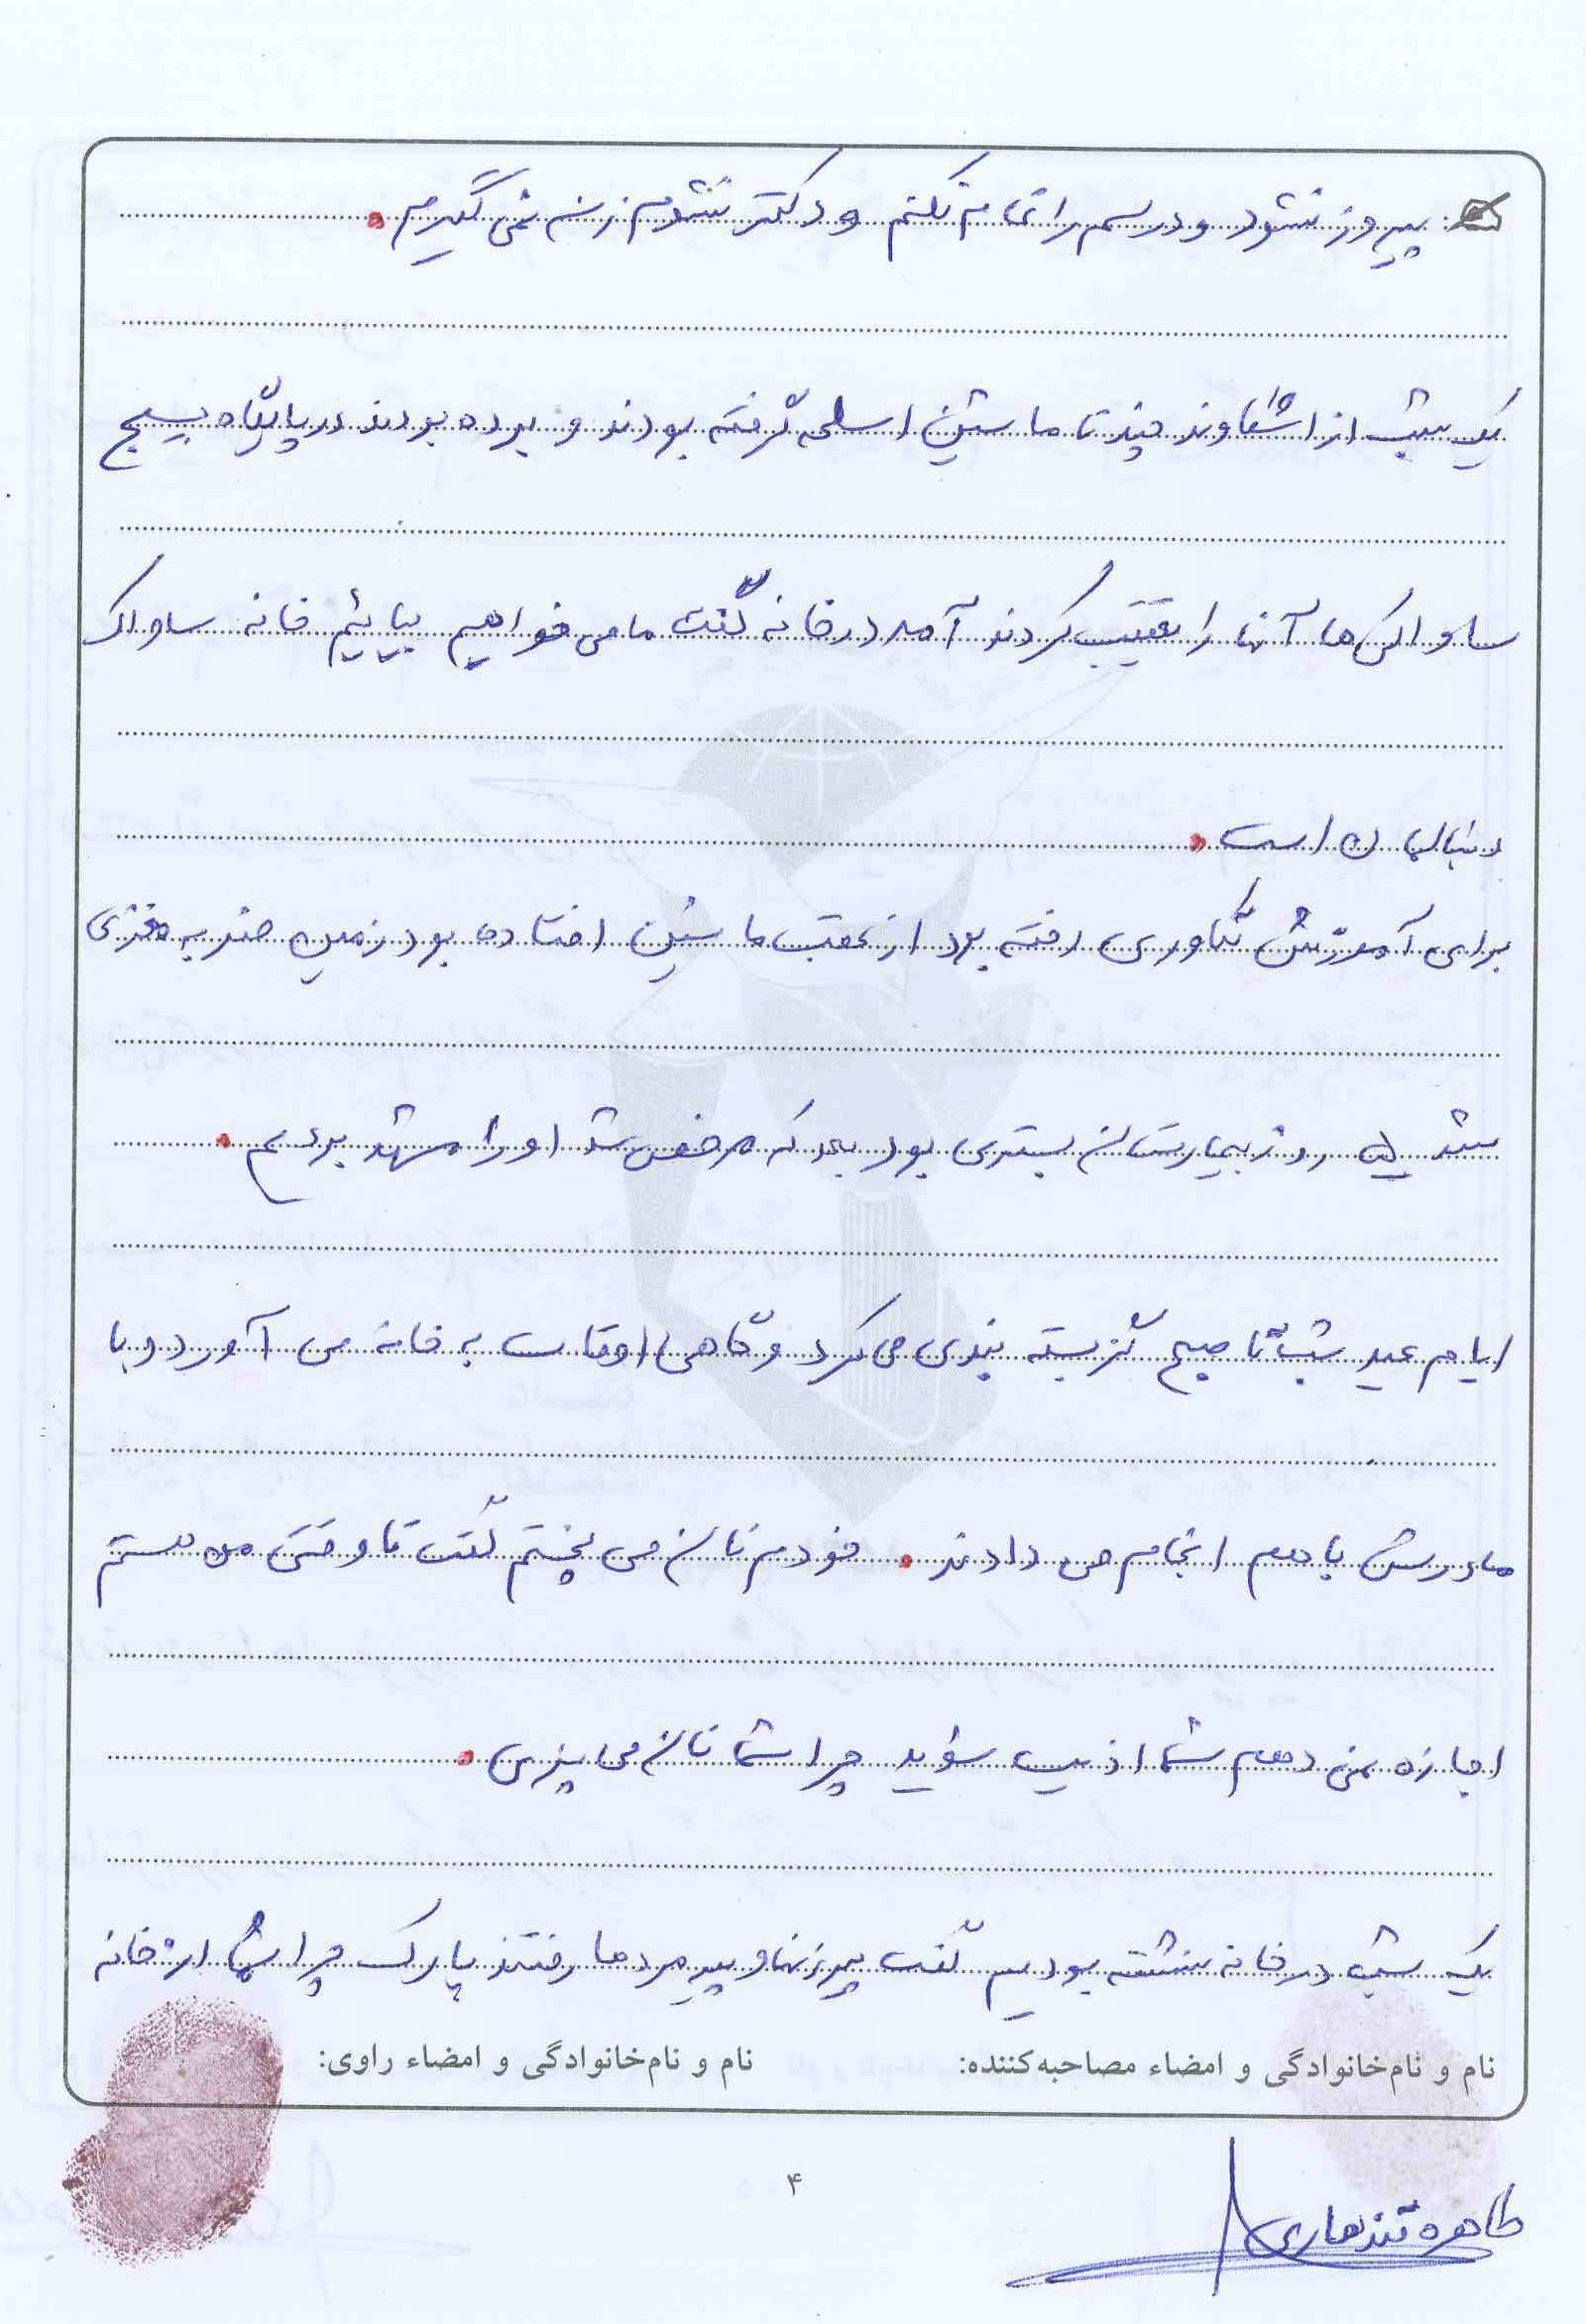 پیروز نشود و درسم را تمام نکنم و دکتر نشوم زن نمی گیرم.
یک شب از اشقاوند چند تا ماشین اسلحه گرفته بودند و برده بودند در پایگاه بسیج
ساواکی ها آنها را تعقیب کردند آمد در خانه گفت ما می خواهیم بیائیم خانه ساواک
دنبالمان است.
برای آموزش تکاوری رفته بود از عقب ماشین افتاده بود زمین ضربه مغزی
شد روز بیمارستان بستری بود بعد که مرخص شد او را مشهد بردیم.
ایام عید شب تا صبح گز بسته بندی می کرد و گاهی اوقات به خانه می آورد و با
مادرش با هم انجام می دادند. خودم نان می پختم گفت تا وقتی من هستم
اجازه نمی دهم شما اذیت شوید چرا شما نان می پزی.
یک شب در خانه نشسته بودیم گفت پیرزنها و پیرمردها رفتند پارک چرا شما از خانه
نام و نام‌خانوادگی و امضاء مصاحبه‌کننده:
نام و نام‌خانوادگی و امضاء راوی:
۴
طاهره قندهاری